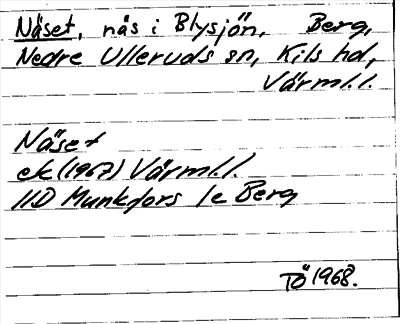 Näset, näs i Blysjön, Berg,
Nedre Ulleruds sn, Kils hd,
Värml.l.
Näset
ek (1967) Värml.l.
11D Munkfors 1e Berg
TÖ 1968.